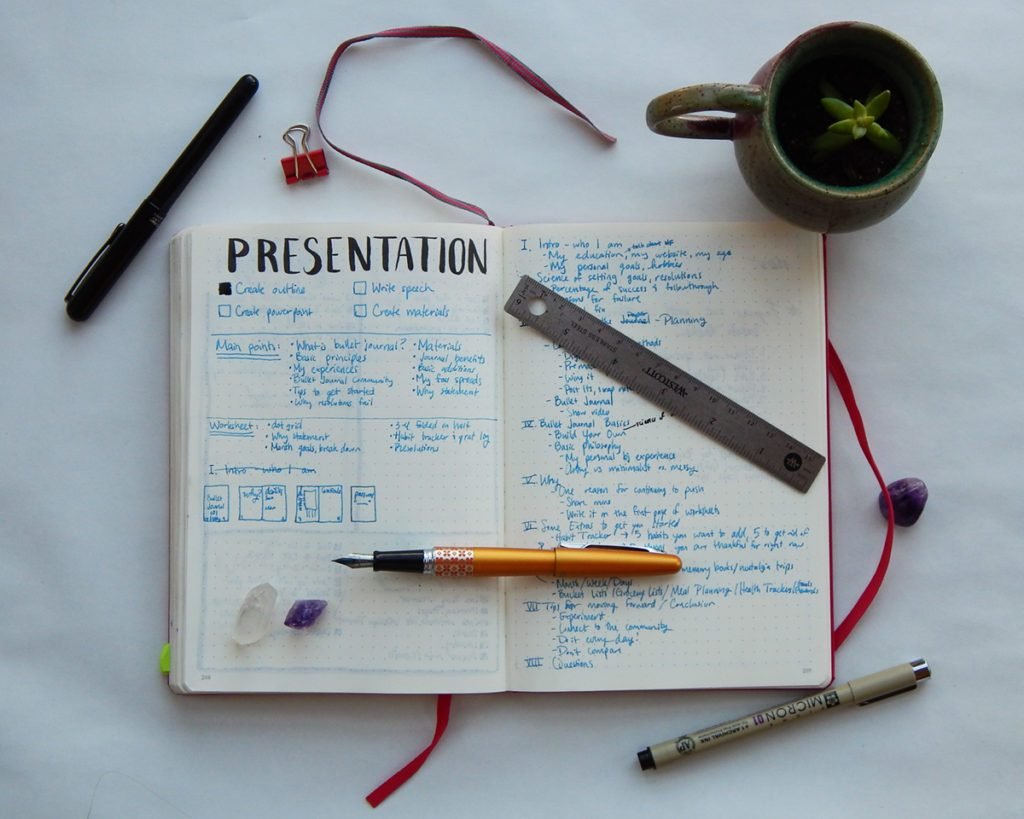 PRESENTATION
Create outline
Write speech
Create powerpoint
Create materials
Main points:
• What is bullet journal?
• Basic principles
• My experiences
• Bullet Journal Community
• Tips to get started
• Why resolutions fail
• Materials
• Journal benefits
• Basic additions
• My fav spreads
• Why statement
Worksheet:
• dot grid
• Why statement
• Month goals, break down
folded in half
• Habit tracker & grat log
• Resolutions
I. Intro - who I am
Bullet
Journal
248
I. Intro - who I am
- My education, my website, my age
- My personal goals, hobbies
Science of setting goals, resolutions
Percentage of success & followthrough
reasons for failure
fix
Journal - Planning
- Why it
- Post its,
- Bullet Journal
- Show video
IV. Bullet Journal Basics
- Build Your Own
- Basic philosophy
- My personal bj experience
- Artsy vs minimalist vs messy
V. Why
- One reason for continuing to push
- Share mine
- Write it on the first page of worksheets
VI. Some Extras to get you started
- Habit Tracker / → 5 habits you want to add, 5 to get rid of
you are thankful for right now
memory books/nostalgia trips
- Month/Week/Days
- Bucket Lists/Grocery Lists/Meal Planning/Health Trackers/
VII Tips for moving forward/Conclusion
- Experiment
- Connect to the community
- Do it every day!
- Don't compare
VIII Questions
STAINLESS STEEL
WESTCOTT
MICRON 01
ARCHIVAL INK